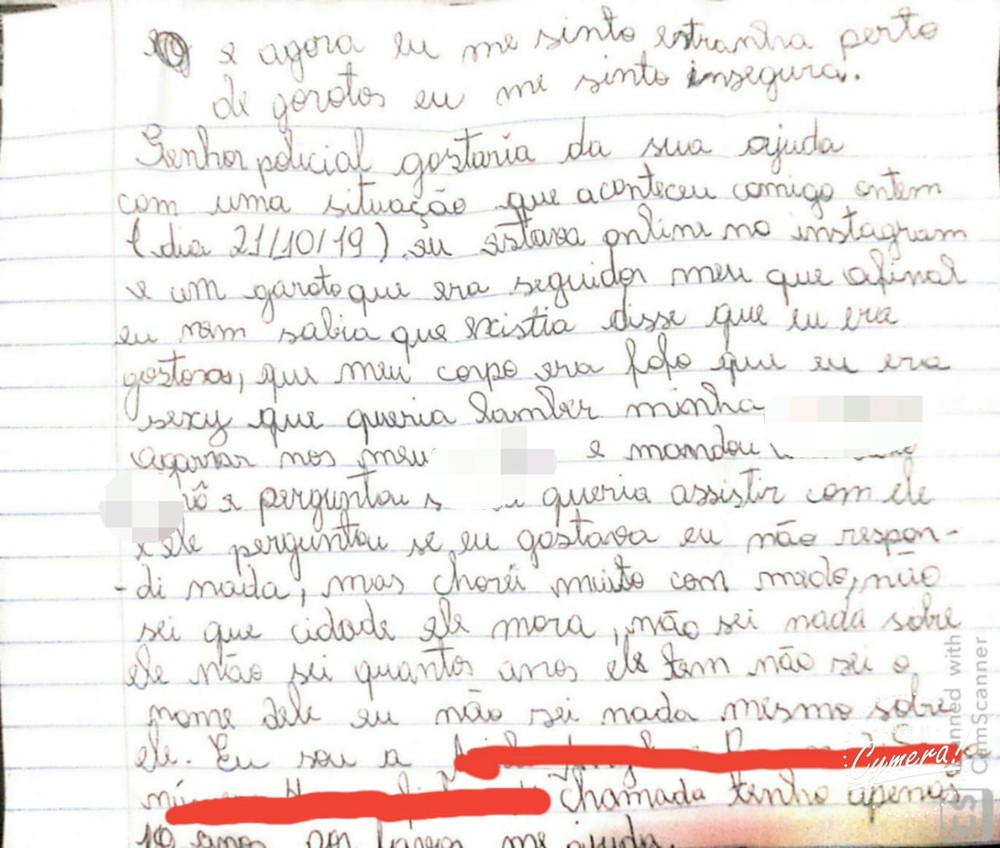 e agora eu me sinto estranha perto
de garotos eu me sinto insegura.
Senhor policial gostaria da sua ajuda
com uma situação que aconteceu comigo ontem
(dia 21/10/19) eu estava online no instagram
e um garoto que era seguidor meu que afinal
eu nem sabia que existia disse que eu era
gostosa, que meu corpo era fofo que eu era
sexy que queria lamber minha
agarrar nos meu e mandou
e perguntou queria assistir com ele
e ele perguntou se eu gostava eu não respon-
-di nada, mas chorei muito com medo, não
sei que cidade ele mora, não sei nada sobre
ele não sei quantos anos ele tem não sei o
nome dele eu não sei nada mesmo sobre
ele. Eu sou a
chamada tenho apenas
10 anos por favor me ajuda.
Cymera!
Scanned with
CamScanner
CS